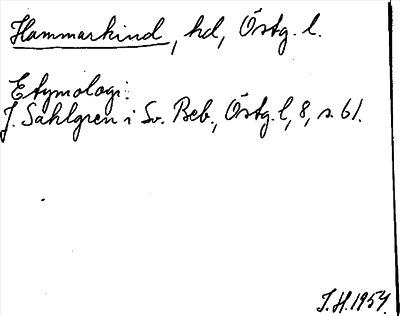 Hammarkind, hd, Östg. l.
Etymologi:
J. Sahlgren i Sv. Beb., Östg. l, 8, s. 61.
J. H. 1954.